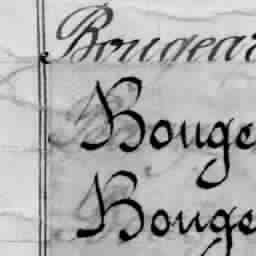 Bougear
Bouge
Bouge